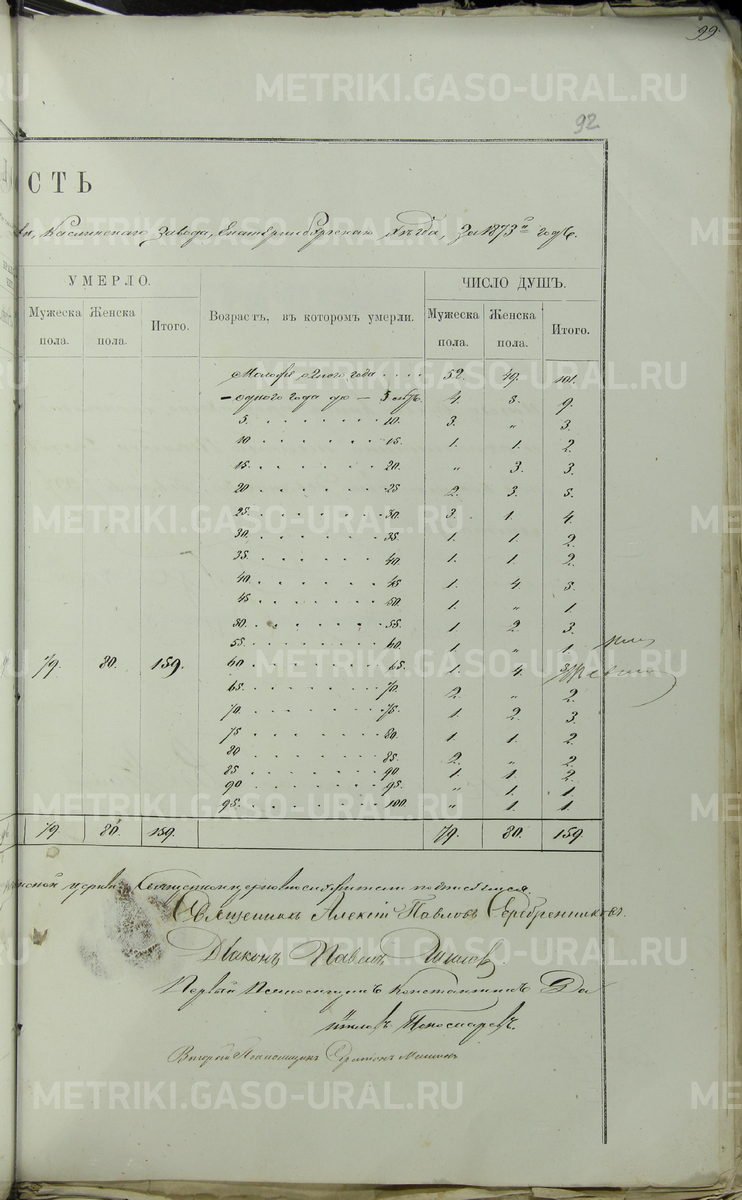 99.
92
СТЬ
Каслинскаго Завода, Екатеринбургскаго Уѣзда, За 1873й годъ.
УМЕРЛО. ЧИСЛО ДУШЪ.
Мужеска пола. Женска пола. Итого. Возрастъ, въ которомъ умерли. Мужеска пола. Женска пола. Итого.
одного года . . . . 52. 49. 101.
— одного года до — 5 4. 5. 9.
5. . . . . . . . 10. 3. „ 3.
10 . . . . . . . 15. 1. 1. 2.
15. . . . . . . 20. „ 3. 3.
20 . . . . . . . 25 2. 3. 5.
25. . . . . . . 30. 3. 1. 4.
30. . . . . . . 35. 1. 1. 2.
35. . . . . . . 40. 1. 1. 2.
40 . . . . . . . 45 1. 4. 5.
45 . . . . . . . 50. 1. „ 1
50. . . . . . . 55. 1. 2 3.
55. . . . . . . 60. 1. „ 1.
79. 80. 159. 60 . . . . . . . 65. 1. 4.
65. . . . . . . 70. 2. „ 2.
70. . . . . . . 75. 1. 2. 3.
75 . . . . . . . 80. 1. 1. 2.
80 . . . . . . . 85. 2. „ 2.
85. . . . . . . 90 1. 1. 2.
90 . . . . . . . 95. „ 1. 1.
95. . . . . . . 100 „ 1. 1.
79. 80. 159. 79. 80. 159
церкви
Священникъ Алексій Павловъ Серебренниковъ.
Діаконъ Павелъ
Первый Псаломщикъ Константинъ Да
ниловъ Пономаревъ.
Второй Псаломщикъ
METRIKI.GASO-URAL.RU